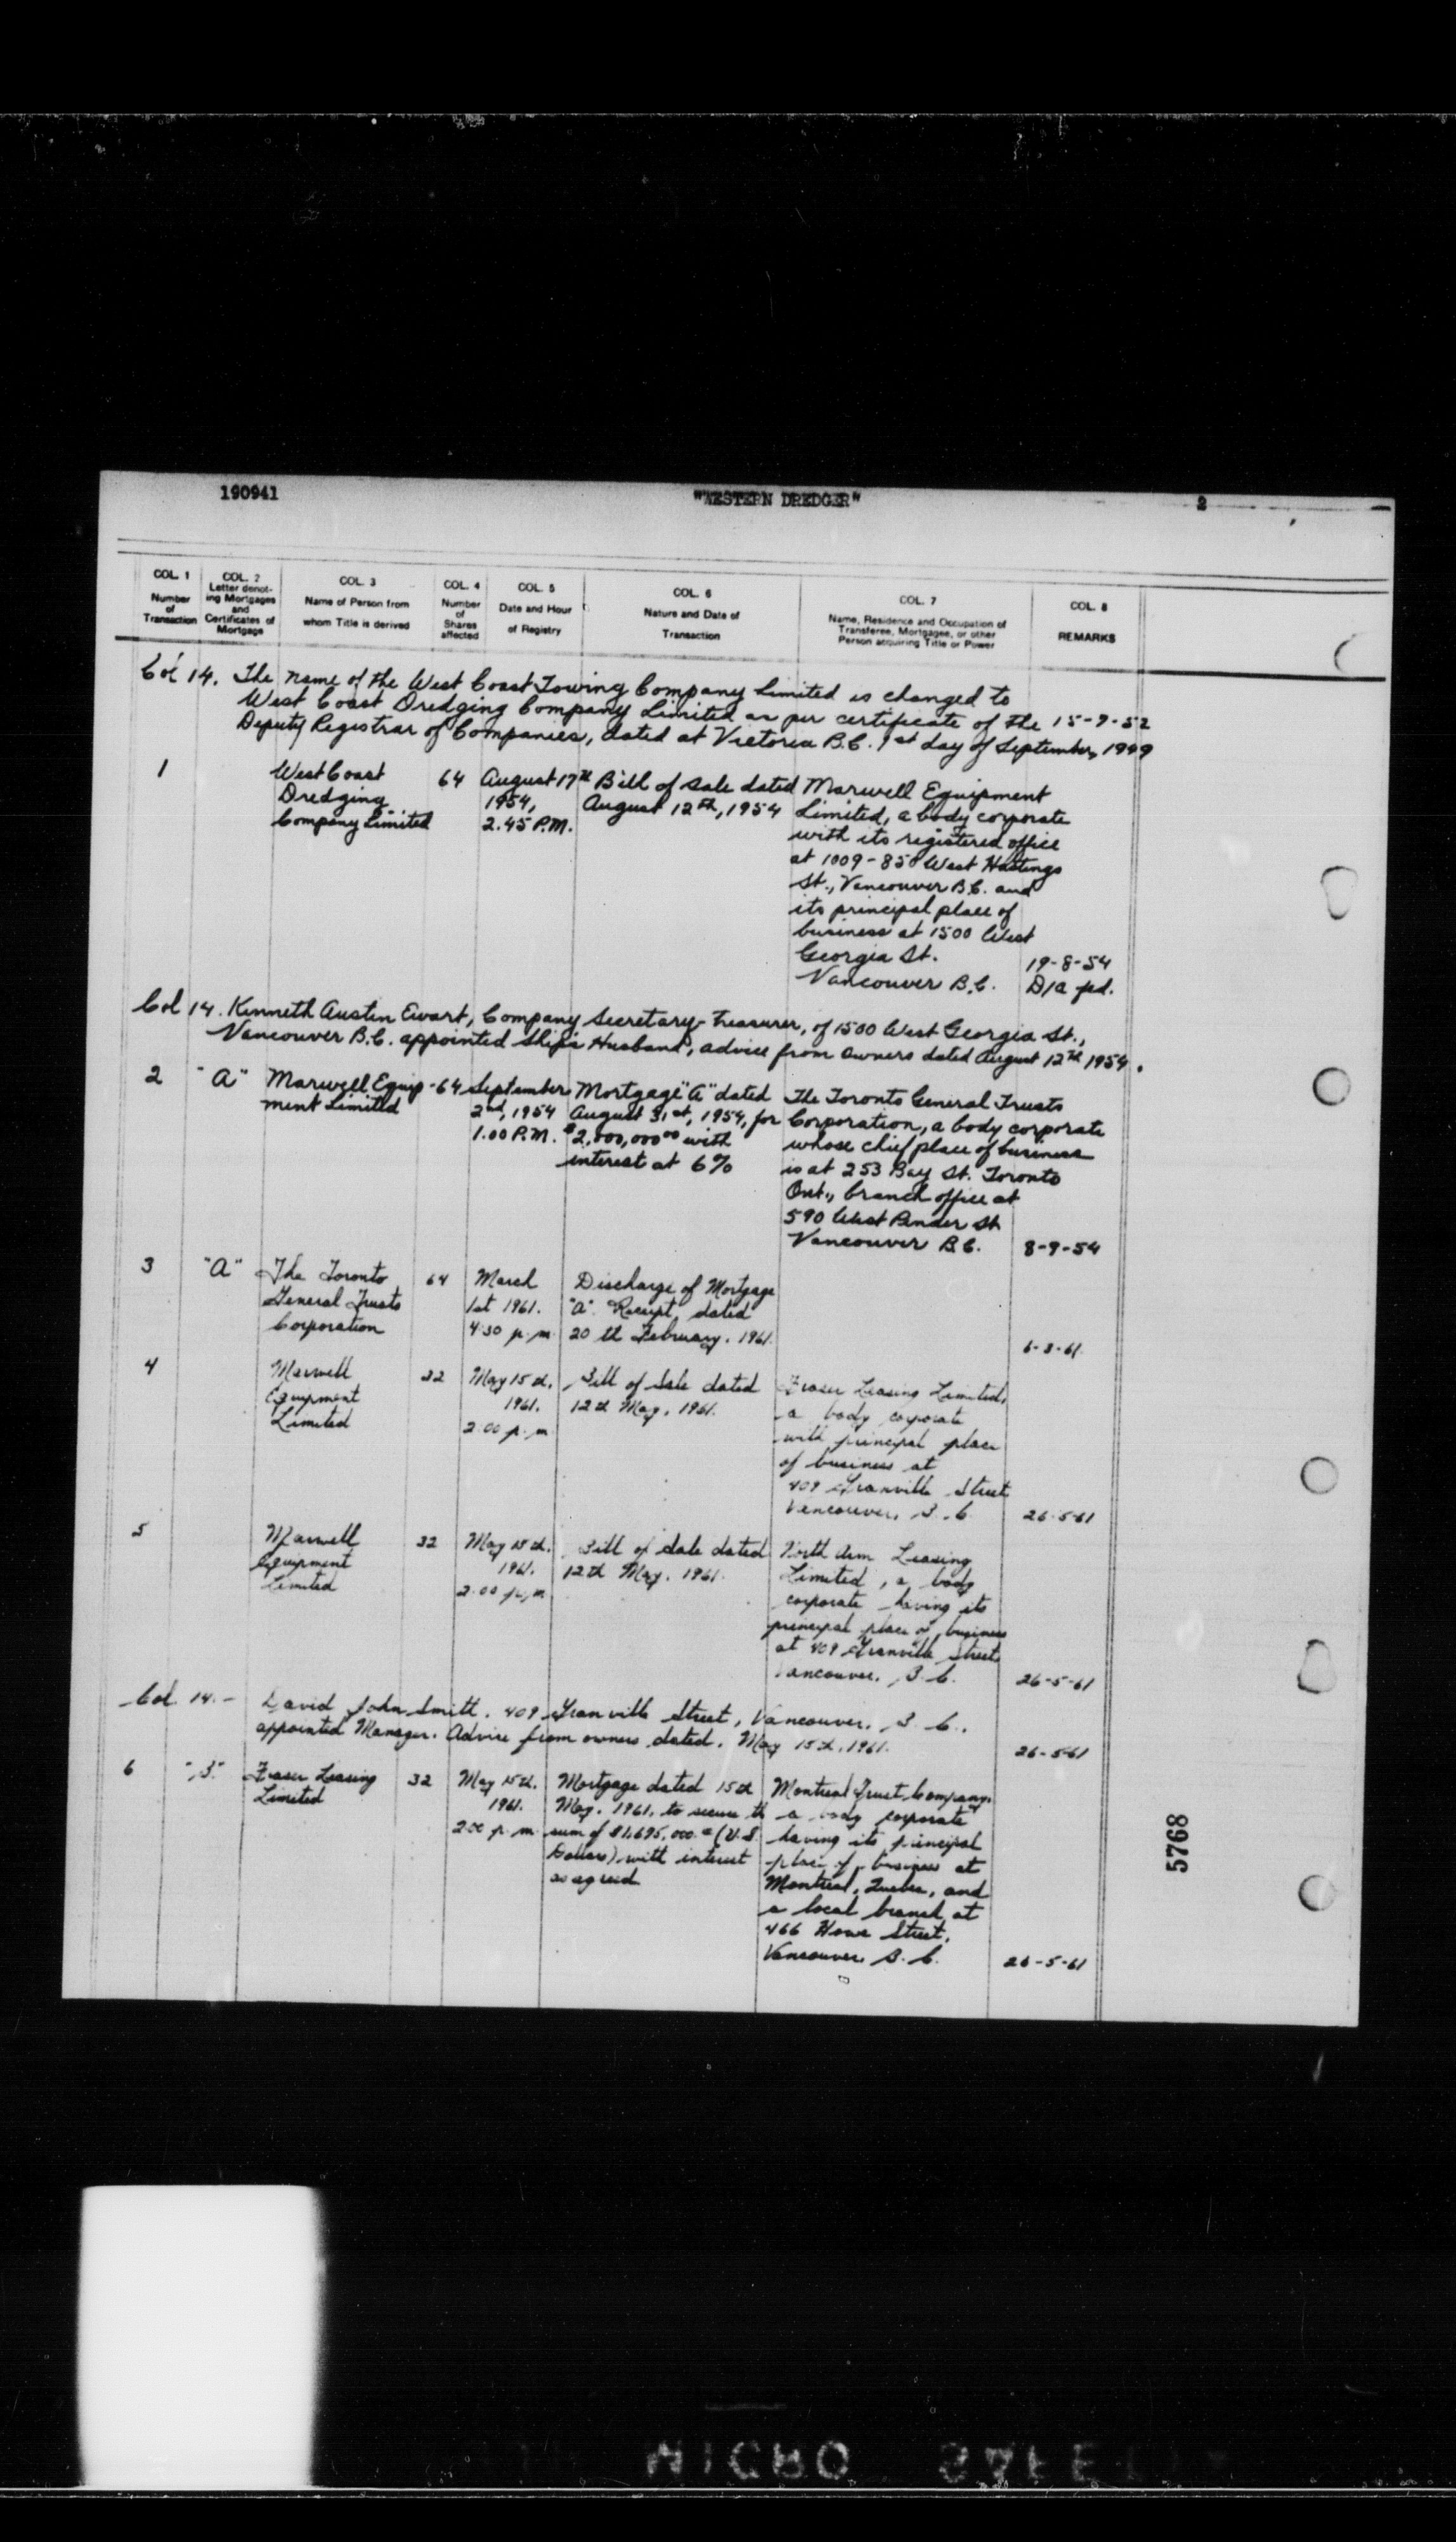 190941 "WESTERN DREDGER" 2
COL. 1 Number of Transaction
COL. 2 Letter denoting Mortgages and Certificates of Mortgage
COL. 3 Name of Person from whom Title is derived
COL. 4 Number of Shares affected
COL. 5 Date and Hour of Registry
COL. 6 Nature and Date of Transaction
COL. 7 Name, Residence and Occupation of Transferee, Mortgagee, or other Person acquiring Title or Power
COL. 8 REMARKS
Col 14. The name of the West Coast Towing Company Limited is changed to
West Coast Dredging Company Limited as per certificate of the 15-9-52
Deputy Registrar of Companies, dated at Victoria B.C. 1st day of September, 1949
1
West Coast
Dredging
Company Limited
64
August 17th
1954,
2.45 P.M.
Bill of Sale dated
August 12th, 1954
Marwell Equipment
Limited, a body corporate
with its registered office
at 1009-850 West Hastings
St., Vancouver B.C. and
its principal place of
business at 1500 West
Georgia St.
Vancouver B.C.
19-8-54
D/a fed.
Col 14. Kenneth Austin Ewart, Company Secretary-Treasurer, of 1500 West Georgia St.,
Vancouver B.C. appointed Ship's Husband, advice from owners dated August 12th 1954.
2
"A"
Marwell Equip-
ment Limited
64
September
2nd, 1954
1.00 P.M.
Mortgage "A" dated
August 31st, 1954, for
$2,000,000.00 with
interest at 6%
The Toronto General Trusts
Corporation, a body corporate
whose chief place of business
is at 253 Bay St. Toronto
Ont., branch office at
590 West Pender St.
Vancouver B.C.
8-9-54
3
"A"
The Toronto
General Trusts
Corporation
64
March
1st 1961.
4.30 p.m.
Discharge of Mortgage
"A". Receipt dated
20th February. 1961.
6-3-61
4
Marwell
Equipment
Limited
32
May 15th.
1961.
2.00 p.m.
Bill of Sale dated
12th May. 1961.
Fraser Leasing Limited,
a body corporate
with principal place
of business at
409 Granville Street
Vancouver, B.C.
26-5-61
5
Marwell
Equipment
Limited
32
May 15th.
1961.
2.00 p.m.
Bill of Sale dated
12th May. 1961.
North Arm Leasing
Limited, a body
corporate having its
principal place of business
at 409 Granville Street,
Vancouver, B.C.
26-5-61
Col. 14.- David John Smith. 409 Granville Street, Vancouver, B.C.,
appointed Manager. Advice from owners dated. May 15th. 1961.
26-5-61
6
"B"
Fraser Leasing
Limited
32
May 15th.
1961.
2.00 p.m.
Mortgage dated 15th
May. 1961. to secure th
sum of $1,695,000. (U.S.
Dollars) with interest
as agreed.
Montreal Trust Company,
a body corporate
having its principal
place of business at
Montreal, Quebec, and
a local branch at
466 Howe Street,
Vancouver, B.C.
26-5-61
5768